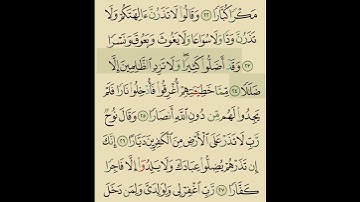 مَكْرًا كُبَّارًا ٢٢ وَقَالُوا۟ لَا تَذَرُنَّ ءَالِهَتَكُمْ وَلَا
تَذَرُنَّ وَدًّا وَلَا سُوَاعًا وَلَا يَغُوثَ وَيَعُوقَ وَنَسْرًا
٢٣ وَقَدْ أَضَلُّوا۟ كَثِيرًا ۖ وَلَا تَزِدِ ٱلظَّٰلِمِينَ إِلَّا
ضَلَٰلًا ٢٤ مِّمَّا خَطِيٓـَٰٔتِهِمْ أُغْرِقُوا۟ فَأُدْخِلُوا۟ نَارًا فَلَمْ
يَجِدُوا۟ لَهُم مِّن دُونِ ٱللَّهِ أَنصَارًا ٢٥ وَقَالَ نُوحٌ
رَّبِّ لَا تَذَرْ عَلَى ٱلْأَرْضِ مِنَ ٱلْكَٰفِرِينَ دَيَّارًا ٢٦ إِنَّكَ
إِن تَذَرْهُمْ يُضِلُّوا۟ عِبَادَكَ وَلَا يَلِدُوٓا۟ إِلَّا فَاجِرًا
كَفَّارًا ٢٧ رَّبِّ ٱغْفِرْ لِى وَلِوَٰلِدَىَّ وَلِمَن دَخَلَ